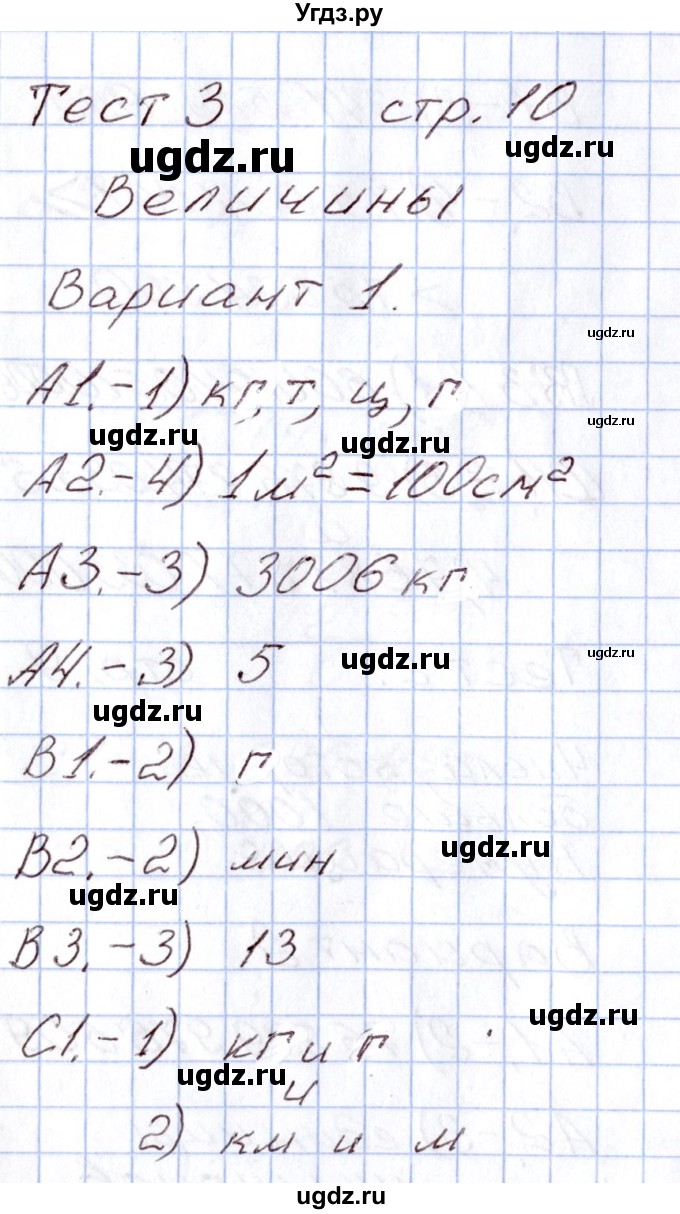 Угдз.ру
Тест 3 стр. 10
ugdz.ru ugdz.ru
Величины
Вариант 1.
ugdz.ru
А1.-1) кг, т, ц, г
ugdz.ru ugdz.ru ugdz.ru
А2.-4) 1м²=100см²
А3.-3) 3006кг
ugdz.ru
А4.-3) 5
ugdz.ru ugdz.ru
ugdz.ru
В1.-2) г
В2.-2) мин
ugdz.ru
ugdz.ru
В3.-3) 13
ugdz.ru
С1.-1) кг и г
ugdz.ru
и
2) км и м
ugdz.ru